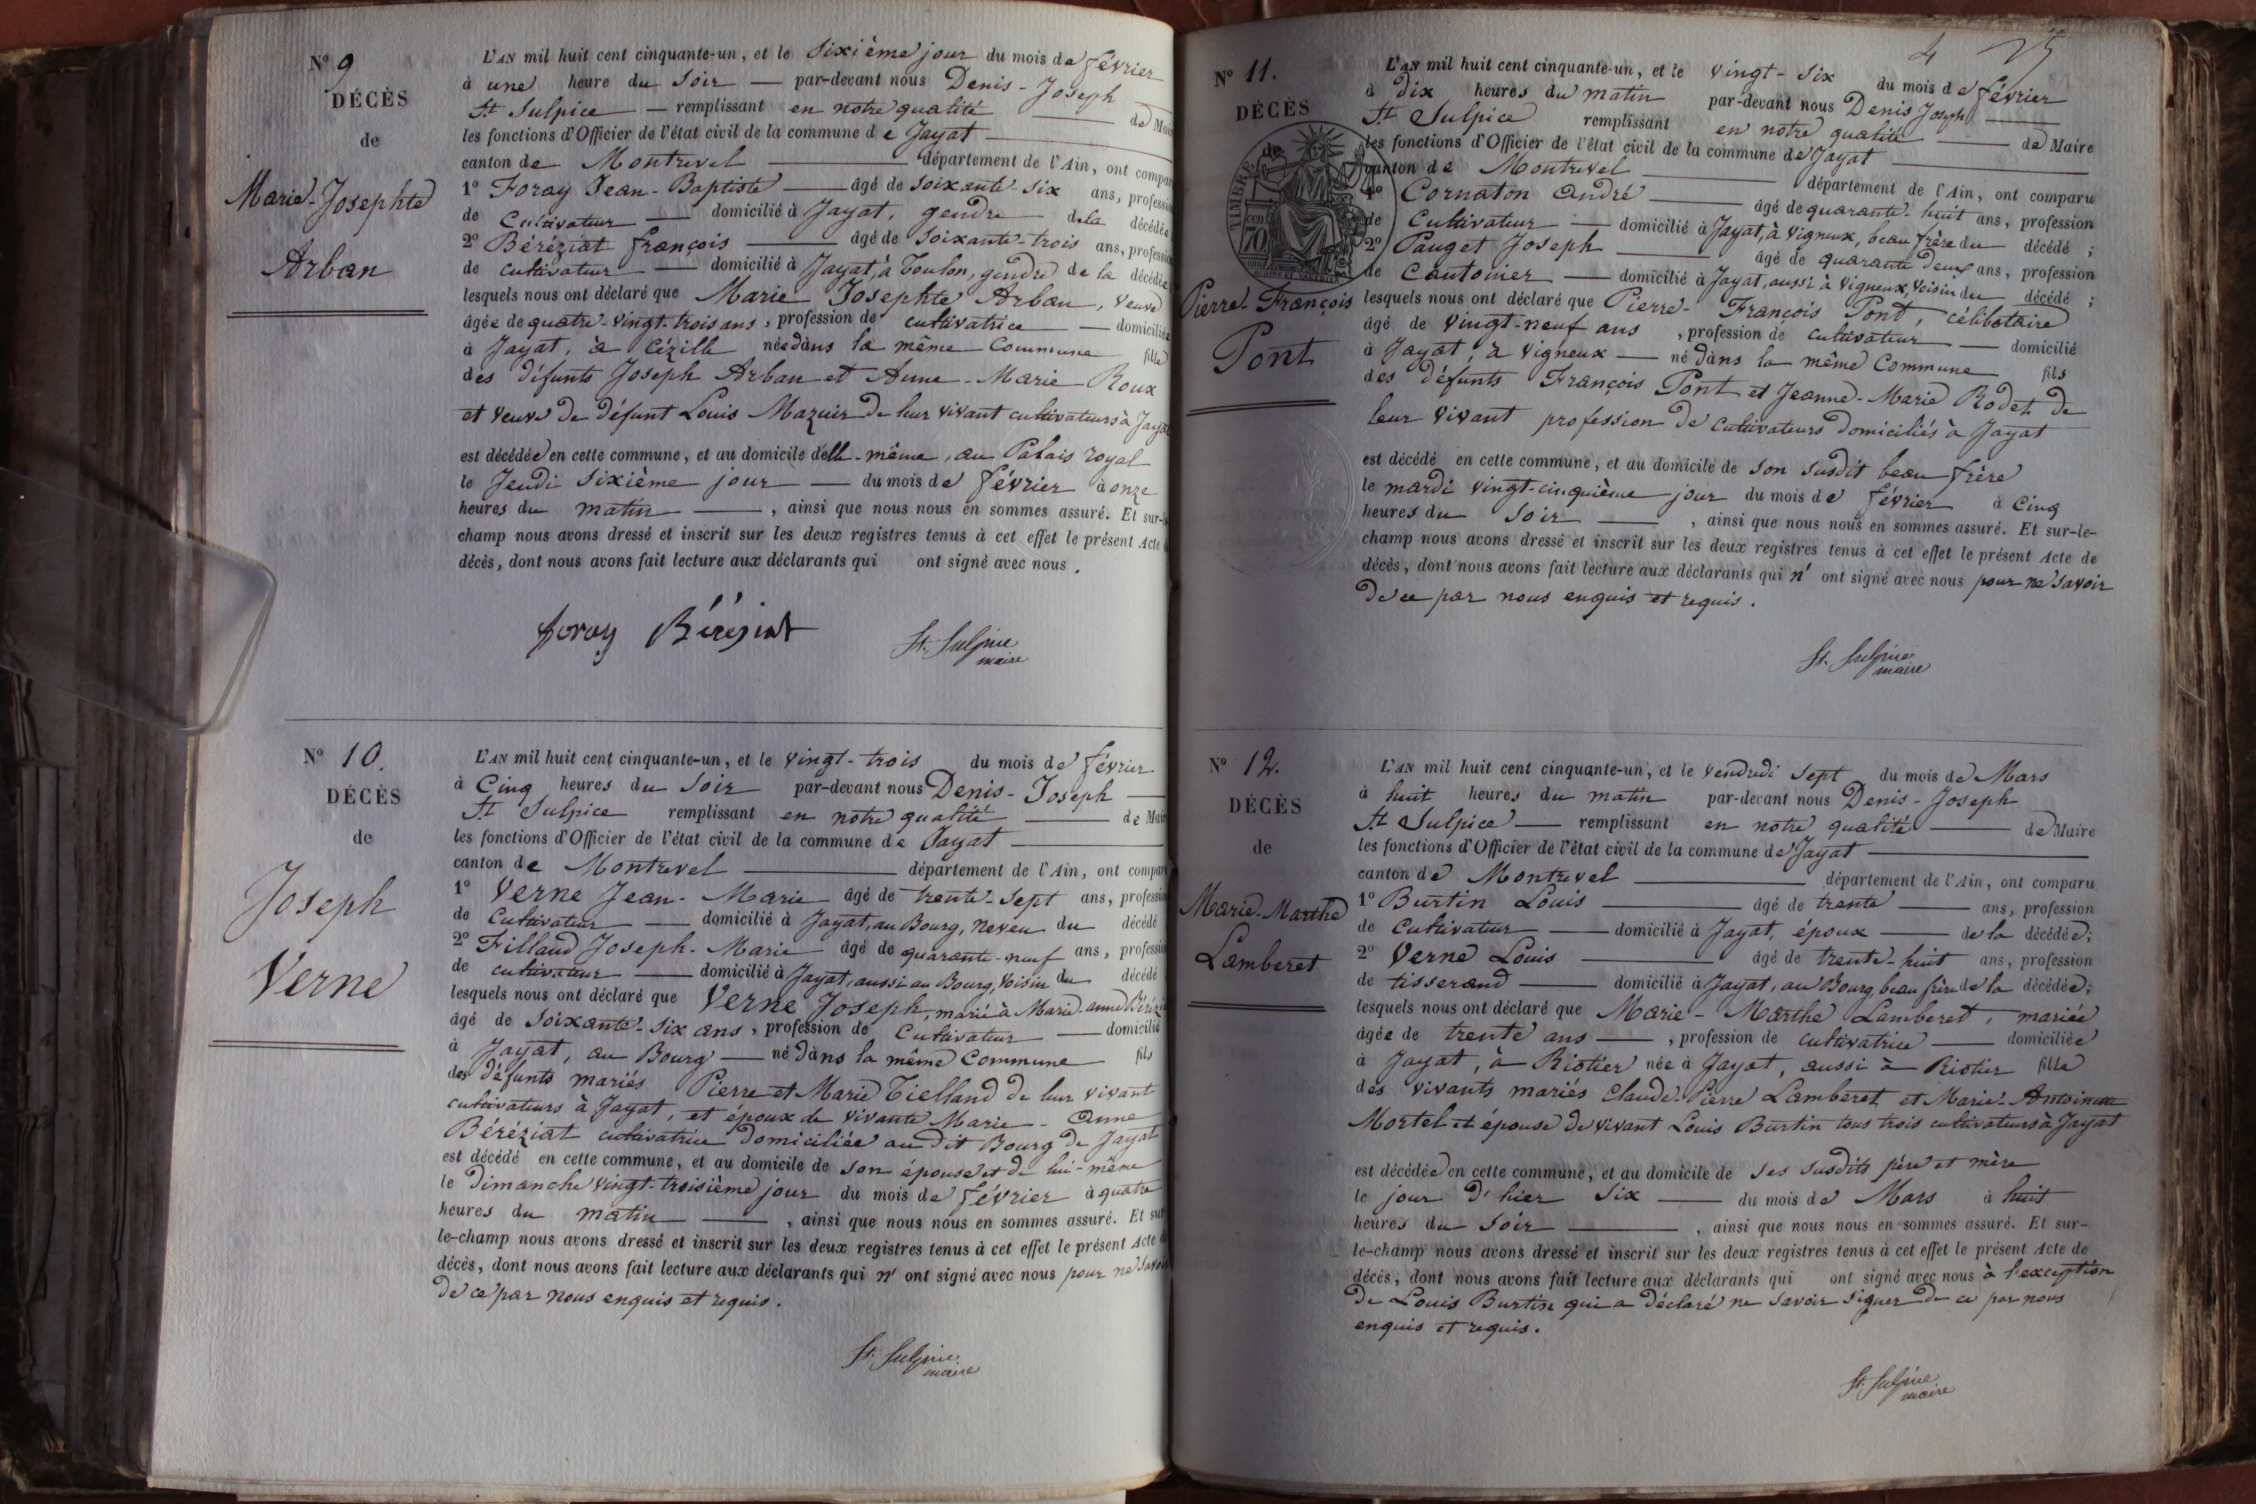 N° 9
DÉCÈS
de
Marie-Josephte
Arban
L'AN mil huit cent cinquante-un, et le Sixième jour du mois de février
à une heure du Soir — par-devant nous Denis-Joseph
St Sulpice — remplissant en notre qualité — de Mai
les fonctions d'Officier de l'état civil de la commune de Jayat —
canton de Montrevel — département de l'Ain, ont compar
1° Foray Jean-Baptiste — âgé de soixante-six ans, profession
de Cultivateur — domicilié à Jayat, gendre de la décédée
2° Béréziat françois — âgé de Soixante-trois ans, profession
de cultivateur — domicilié à Jayat, à Toulon, gendre de la décédée
lesquels nous ont déclaré que Marie Josephte Arban, veuve
âgée de quatre-vingt-trois ans, profession de cultivatrice — domiciliée
à Jayat, à Cézille née dans la même Commune fille
des défunts Joseph Arban et Anne-Marie Roux
et veuve de défunt Louis Mazuir de leur vivant cultivateurs à Jayat
est décédée en cette commune, et au domicile d'elle-même, au Palais royal
le Jeudi Sixième jour — du mois de février à onze
heures du matin —, ainsi que nous nous en sommes assuré. Et sur-le-
champ nous avons dressé et inscrit sur les deux registres tenus à cet effet le présent Acte
décès, dont nous avons fait lecture aux déclarants qui ont signé avec nous.
foray Béréziat St. Sulpice
maire
N° 10.
DÉCÈS
de
Joseph
Verne
L'AN mil huit cent cinquante-un, et le vingt-trois du mois de février
à Cinq heures du Soir par-devant nous Denis-Joseph —
St Sulpice remplissant en notre qualité — de Mai
les fonctions d'Officier de l'état civil de la commune de Jayat —
canton de Montrevel — département de l'Ain, ont compar
1° Verne Jean-Marie âgé de trente-sept ans, profession
de Cultivateur — domicilié à Jayat, au Bourg, neveu du décédé
2° Filland Joseph-Marie âgé de quarante-neuf ans, profession
de cultivateur — domicilié à Jayat, aussi au Bourg, voisin du décédé
lesquels nous ont déclaré que Verne Joseph, marié à Marie-anne Bérézia
âgé de Soixante-Six ans, profession de Cultivateur — domicilié
à Jayat, au Bourg — né dans la même Commune fils
des défunts mariés Pierre et Marie Tielland de leur vivant
cultivateurs à Jayat, et époux de vivante Marie-Anne
Béréziat cultivatrice domiciliée au dit Bourg de Jayat
est décédé en cette commune, et au domicile de son épouse et de lui-même
le Dimanche vingt-troisième jour du mois de février à quatre
heures du matin —, ainsi que nous nous en sommes assuré. Et sur
le-champ nous avons dressé et inscrit sur les deux registres tenus à cet effet le présent Acte d
décès, dont nous avons fait lecture aux déclarants qui n' ont signé avec nous pour ne savoir
de ce par nous enquis et requis.
St. Sulpice
maire
4 25
N° 11.
DÉCÈS
de
TIMBRE
70
Pierre-François
Pont
L'AN mil huit cent cinquante-un, et le vingt-six du mois de février
à dix heures du matin par-devant nous Denis Joseph —
St Sulpice remplissant en notre qualité — de Maire
les fonctions d'Officier de l'état civil de la commune de Jayat —
canton de Montrevel — département de l'Ain, ont comparu
1° Cornaton André — âgé de quarante-huit ans, profession
de Cultivateur — domicilié à Jayat, à Vigneux, beau frère du décédé ;
2° Pauget Joseph — âgé de quarante deux ans, profession
de Cantonier — domicilié à Jayat, aussi à Vigneux, voisin du décédé ;
lesquels nous ont déclaré que Pierre-François Pont, célibataire
âgé de vingt-neuf ans, profession de cultivateur — domicilié
à Jayat, à Vigneux — né dans la même Commune fils
des défunts François Pont et Jeanne-Marie Rodet de
leur vivant profession de cultivateurs domiciliés à Jayat
est décédé en cette commune, et au domicile de son susdit beau frère
le mardi vingt-cinquième jour du mois de février à Cinq
heures du Soir —, ainsi que nous nous en sommes assuré. Et sur-le-
champ nous avons dressé et inscrit sur les deux registres tenus à cet effet le présent Acte de
décès, dont nous avons fait lecture aux déclarants qui n' ont signé avec nous pour ne savoir
de ce par nous enquis et requis.
St. Sulpice
maire
N° 12.
DÉCÈS
de
Marie-Marthe
Lamberet
L'AN mil huit cent cinquante-un, et le vendredi sept du mois de Mars
à huit heures du matin par-devant nous Denis-Joseph
St Sulpice — remplissant en notre qualité — de Maire
les fonctions d'Officier de l'état civil de la commune de Jayat —
canton de Montrevel — département de l'Ain, ont comparu
1° Burtin Louis — âgé de trente — ans, profession
de Cultivateur — domicilié à Jayat, époux — de la décédée;
2° Verne Louis — âgé de trente-huit ans, profession
de tisserand — domicilié à Jayat, au Bourg, beau frère de la décédée;
lesquels nous ont déclaré que Marie-Marthe Lamberet, mariée
âgée de trente ans —, profession de cultivatrice — domiciliée
à Jayat, à Riotier née à Jayat, aussi à Riotier fille
des vivants mariés Claude-Pierre Lamberet et Marie-Antoinette
Mortel et épouse de vivant Louis Burtin tous trois cultivateurs à Jayat
est décédée en cette commune, et au domicile de ses susdits père et mère
le jour d'hier six — du mois de Mars à huit
heures du Soir —, ainsi que nous nous en sommes assuré. Et sur-
le-champ nous avons dressé et inscrit sur les deux registres tenus à cet effet le présent Acte de
décès, dont nous avons fait lecture aux déclarants qui ont signé avec nous à l'exception
de Louis Burtin qui a déclaré ne savoir signer de ce par nous
enquis et requis.
St. Sulpice
maire